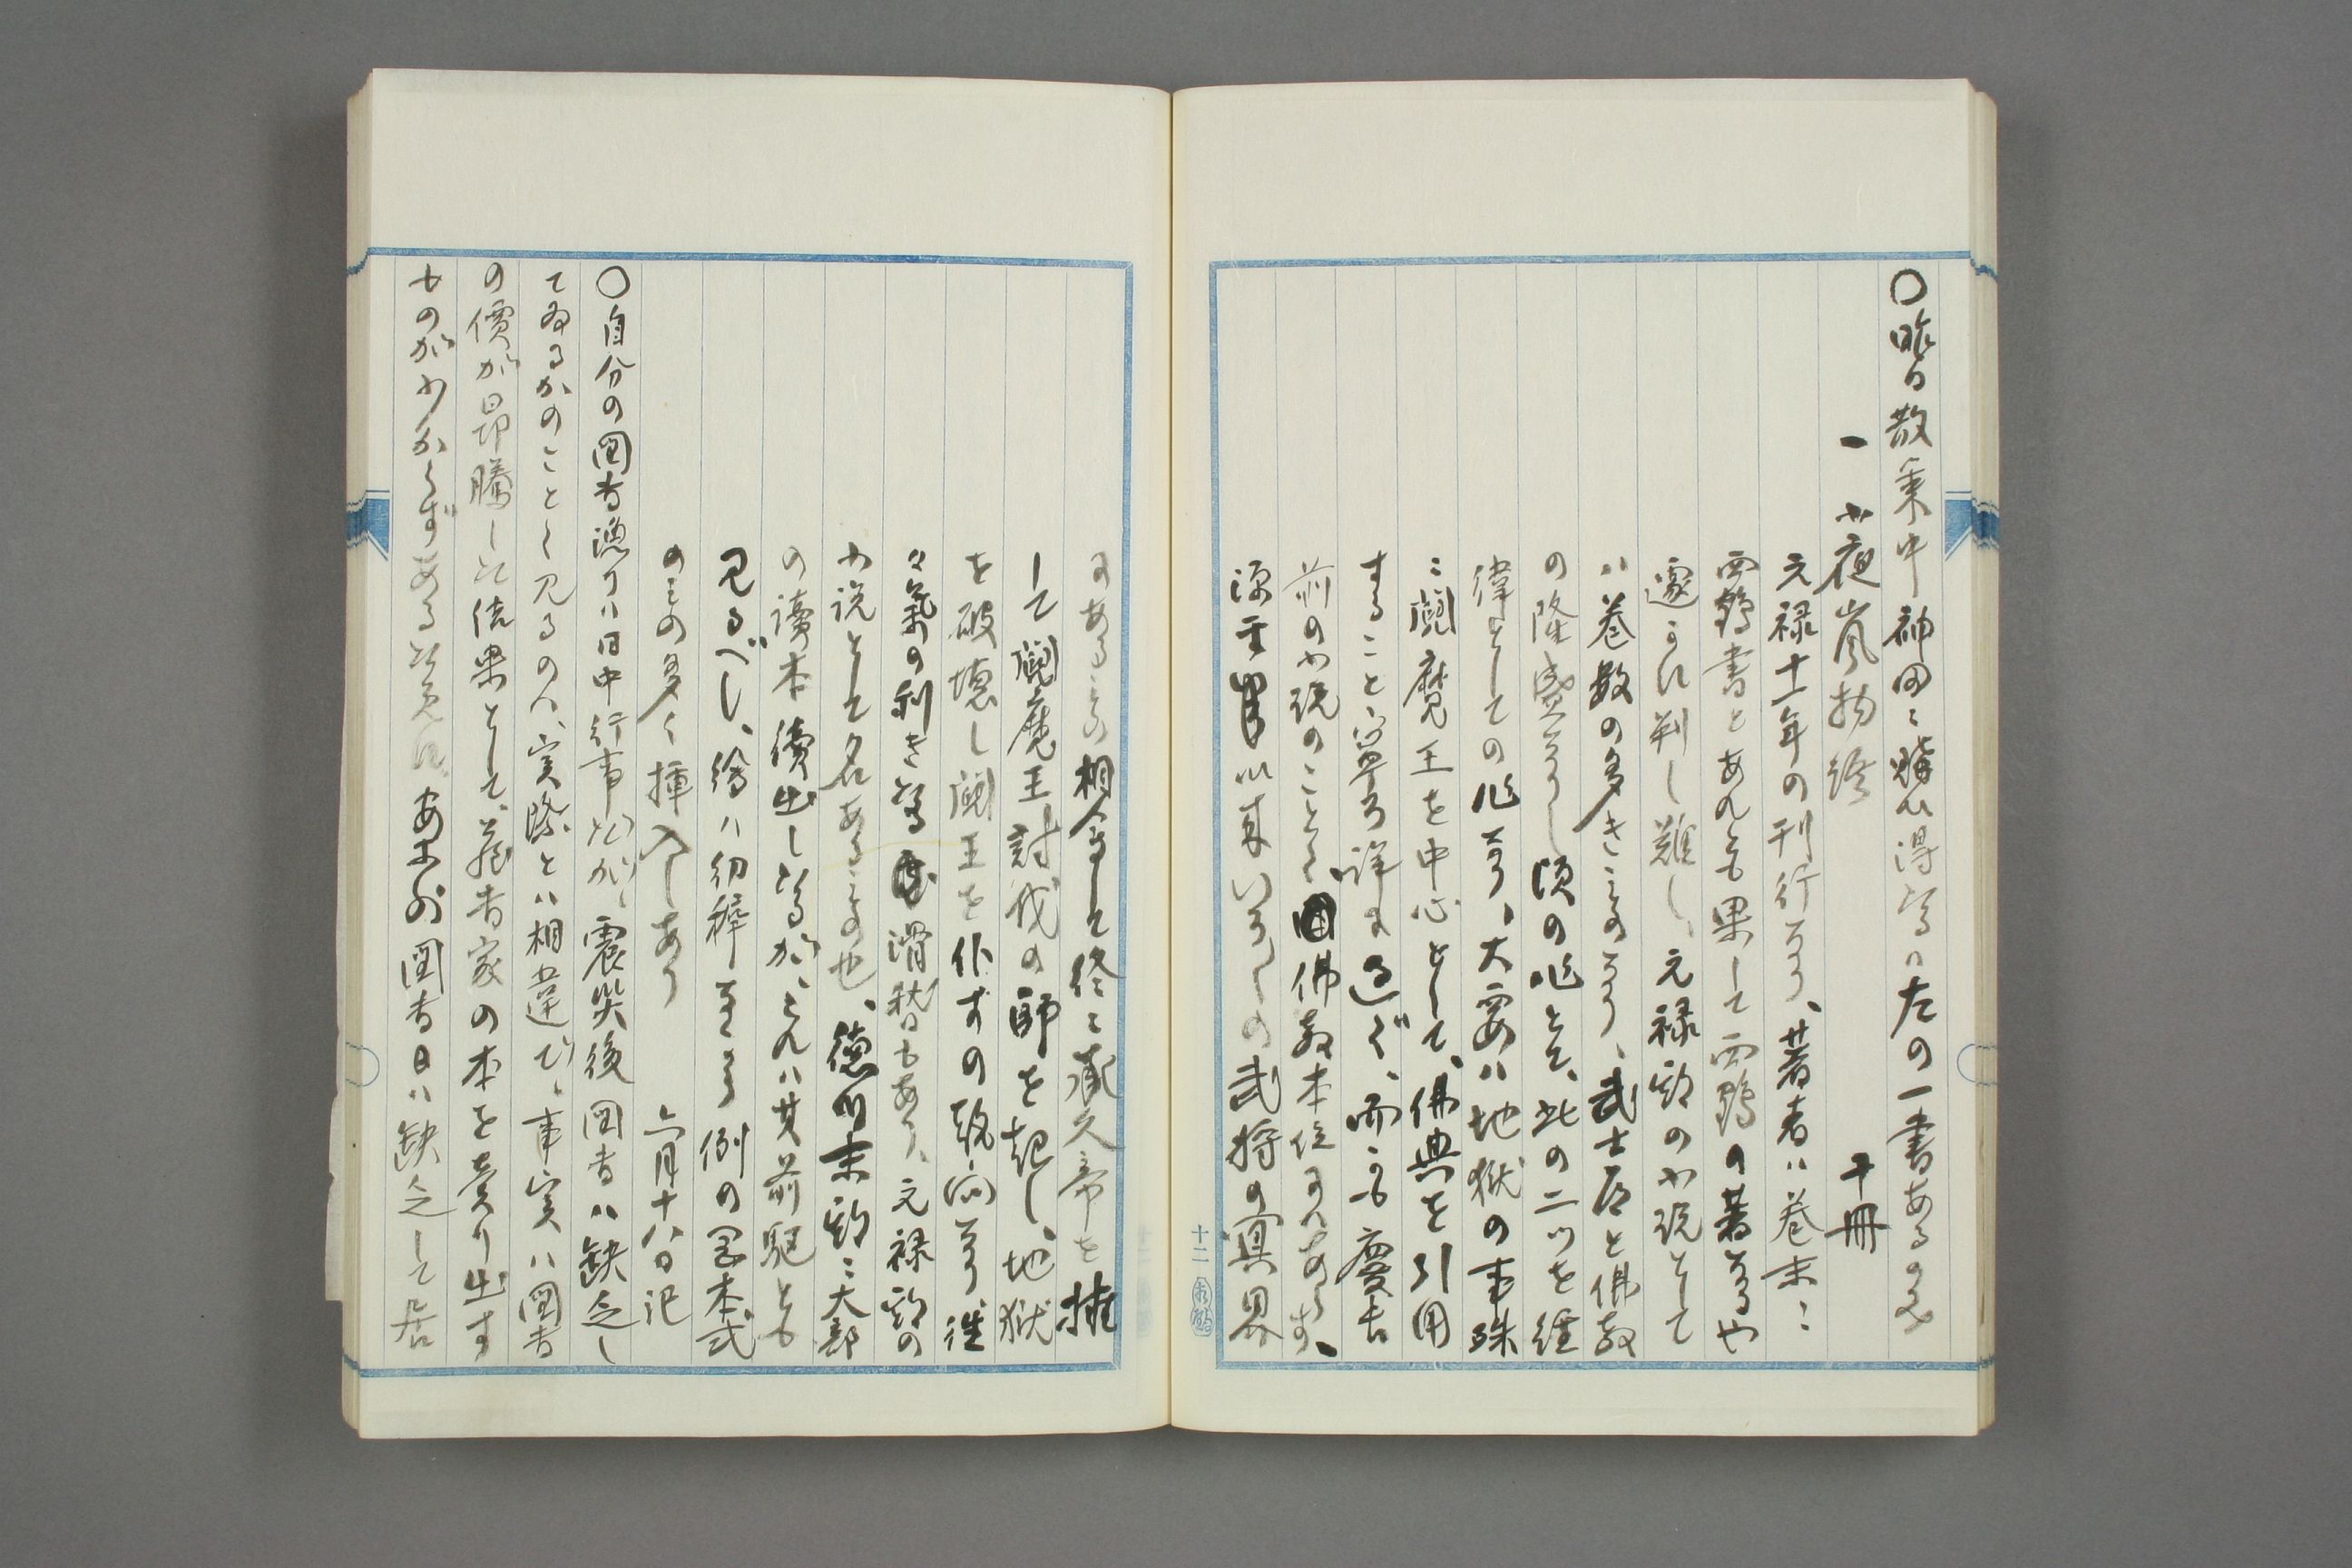 〇昨日散策中神田ニ購ひ得たるハ左の一書あるのみ
一 小夜嵐物語 十冊
元禄十一年の刊行なり、著者ハ巻末ニ
西鶴書とあれども果して西鶴の著なるや
遽かに判し難し、元禄頃の小説として
ハ巻数の多きものなり、武士道と佛教
の隆盛なりし頃の作とて、此の二ツを経
緯としての作なり、大要ハ地獄の事殊
ニ閻魔王を中心として、佛典を引用
すること寧ろ詳に過ぐ、而かも慶長
前の小説のことく佛教本位にハあらす、
源平以来いろ〱の武将の冥界
にあるもの相会して終ニ崇久帝を擁
して閻魔王討伐の師を起し、地獄
を破壊し閻王を仆すの趣向なり、往
々氣の利きたる滑稽もあり、元禄頃の
小説として名あるもの也、徳川末期ニ大部
の讀本續出したるが、これハ其前駆とも
見るべし、繪ハ初稚なる例の黒本式
のもの多く挿入しあり 六月十八日記
〇自分の図書漁りハ日中行事だが、震災後図書ハ缺乏し
てゐるかのことく見るのハ、実際とハ相違で、事実ハ図書
の價が昂騰した結果として、蔵書家の本を賣り出す
ものが少からずある為めに、案外図書日ハ缺乏して居
十二